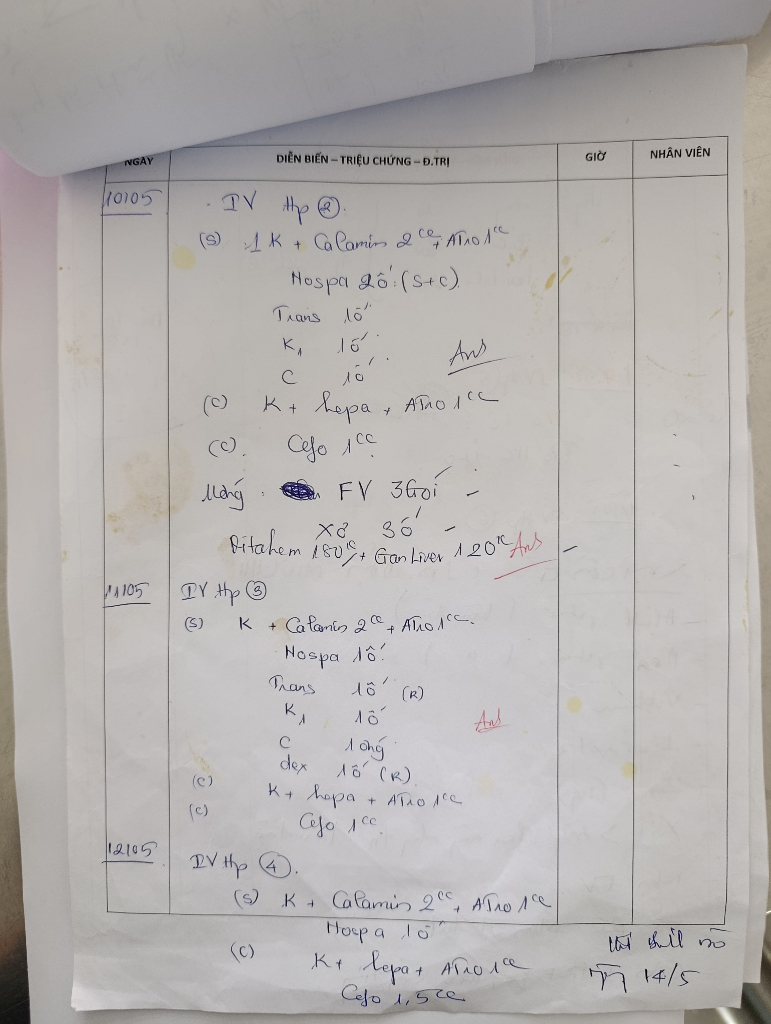 NGÀY DIỄN BIẾN – TRIỆU CHỨNG – Đ.TRỊ GIỜ NHÂN VIÊN
10/05 IV Hp ②.
(S) 1K + Calamin 2cc + ATro 1cc
Nospa 2 ố (S+C)
Trans 1 ố
K1 1 ố
C 1 ố
(C) K + hepa + ATro 1cc
(C). Cefo 1cc
Uống: FV 3 Gói –
Xơ 3 ố –
Ditahem 180k/ + GanLiver 120k –
11/05 IV Hp ③
(S) K + Calamin 2cc + ATro 1cc.
Nospa 1 ố
Trans 1 ố (R)
K1 1 ố
C 1 ống
dex 1 ố (R)
(C) K + hepa + ATro 1cc
(C) Cefo 1cc
12/05 IV Hp ④.
(S) K + Calamin 2cc + ATro 1cc
Nospa 1 ố
(C) K + hepa + ATro 1cc
Cefo 1,5cc
14/5